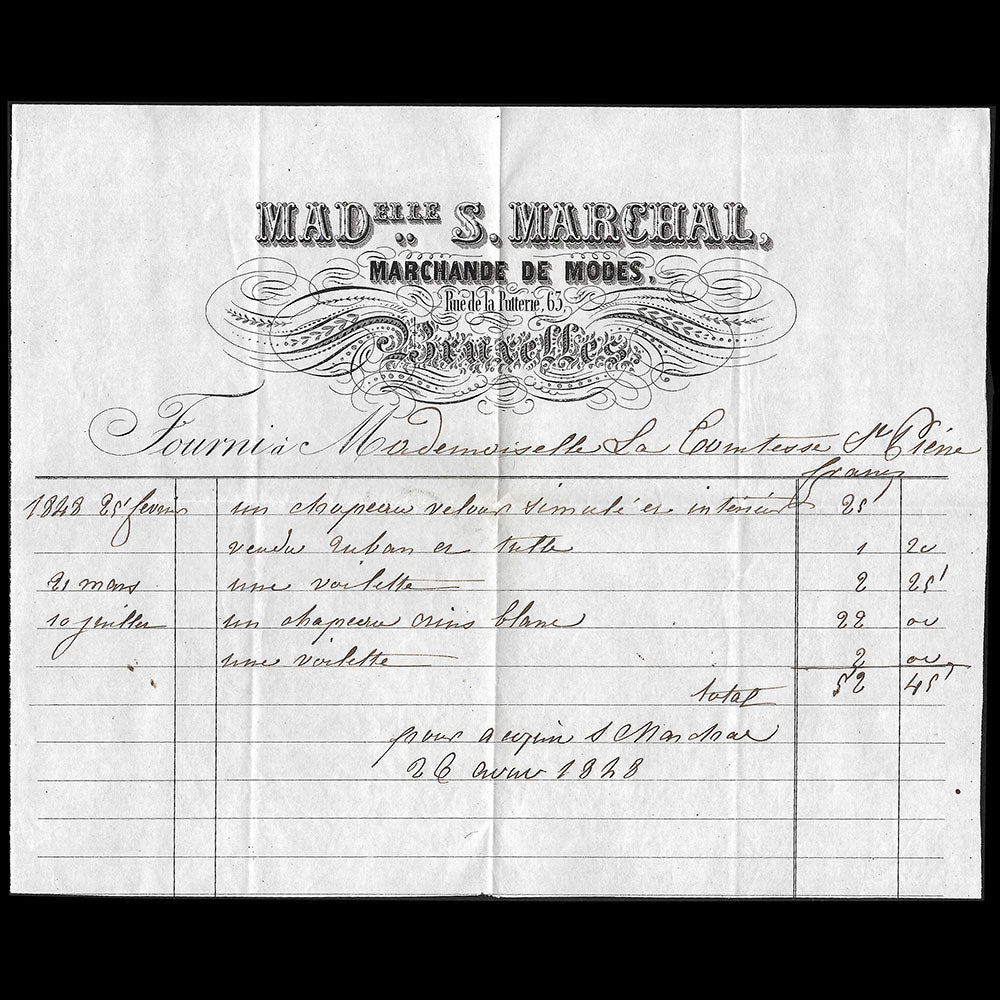 MADELLE S. MARCHAL,
MARCHANDE DE MODES.
Rue de la Putterie, 63,
Bruxelles.
Fourni à Mademoiselle La Comtesse St
francs
1848 25 fevrier un chapeau velour simulé et intérieur 25
vendu ruban et tulle 1 20
21 mars une voilette 2 25
10 juillet un chapeau crins blanc 22 00
une voilette 2 00
total 52 45
pour acquis S Marchal
26 1848